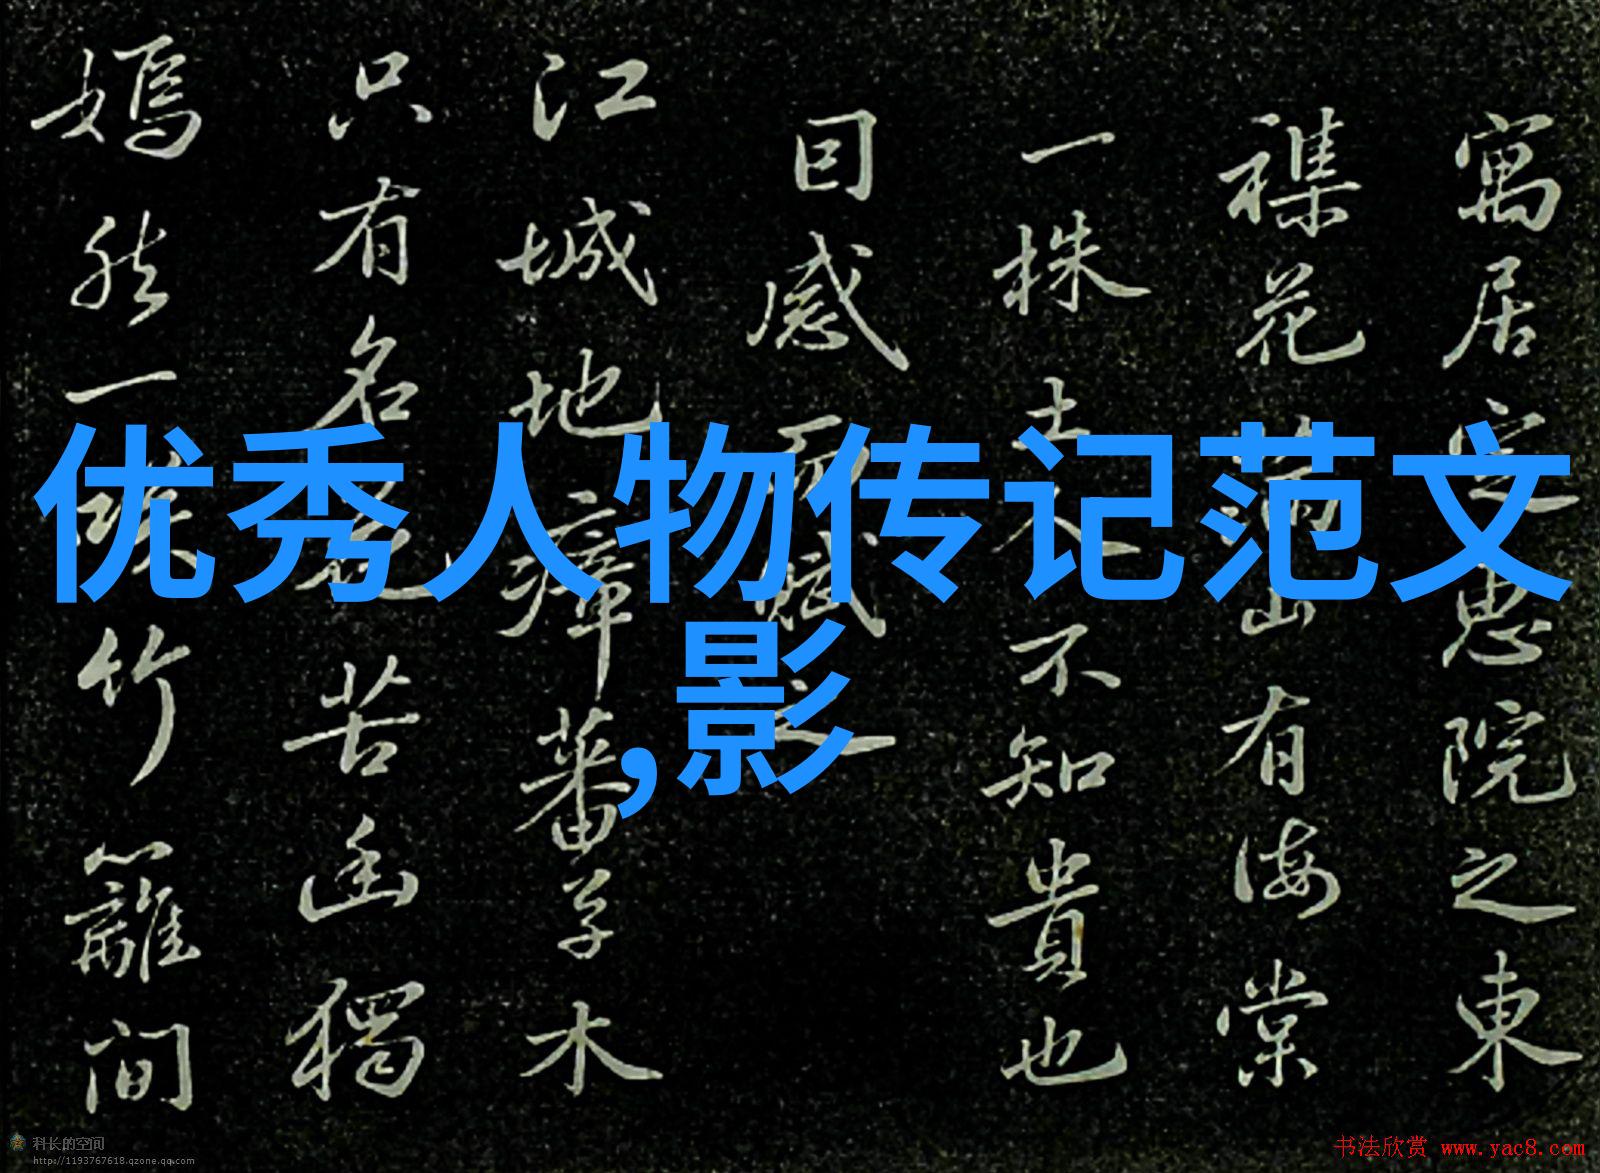 寓居定惠院之東
襍花滿山有海棠
一株土人不知貴也
囙感而賦之
江城地瘴蕃草木
只有名花苦幽獨
嫣然一笑竹籬間
优秀人物传记范文
,影
科长的空间
http://1193767618.qzone.qq.com
书法欣赏 www.yac8.com